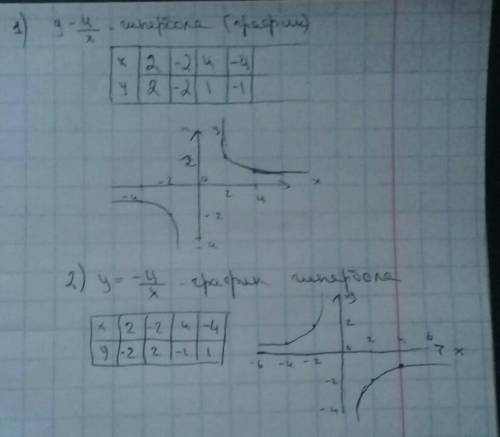 1) y = 4/x - гипербола (график)
x 2 -2 4 -4
y 2 -2 1 -1
y
2
-4 -2 0 2 4 x
-2
-4
2) y = -4/x - график гипербола
x 2 -2 4 -4
y -2 2 -1 1
y
2
-6 -4 -2 0 2 4 6 x
-2
-4